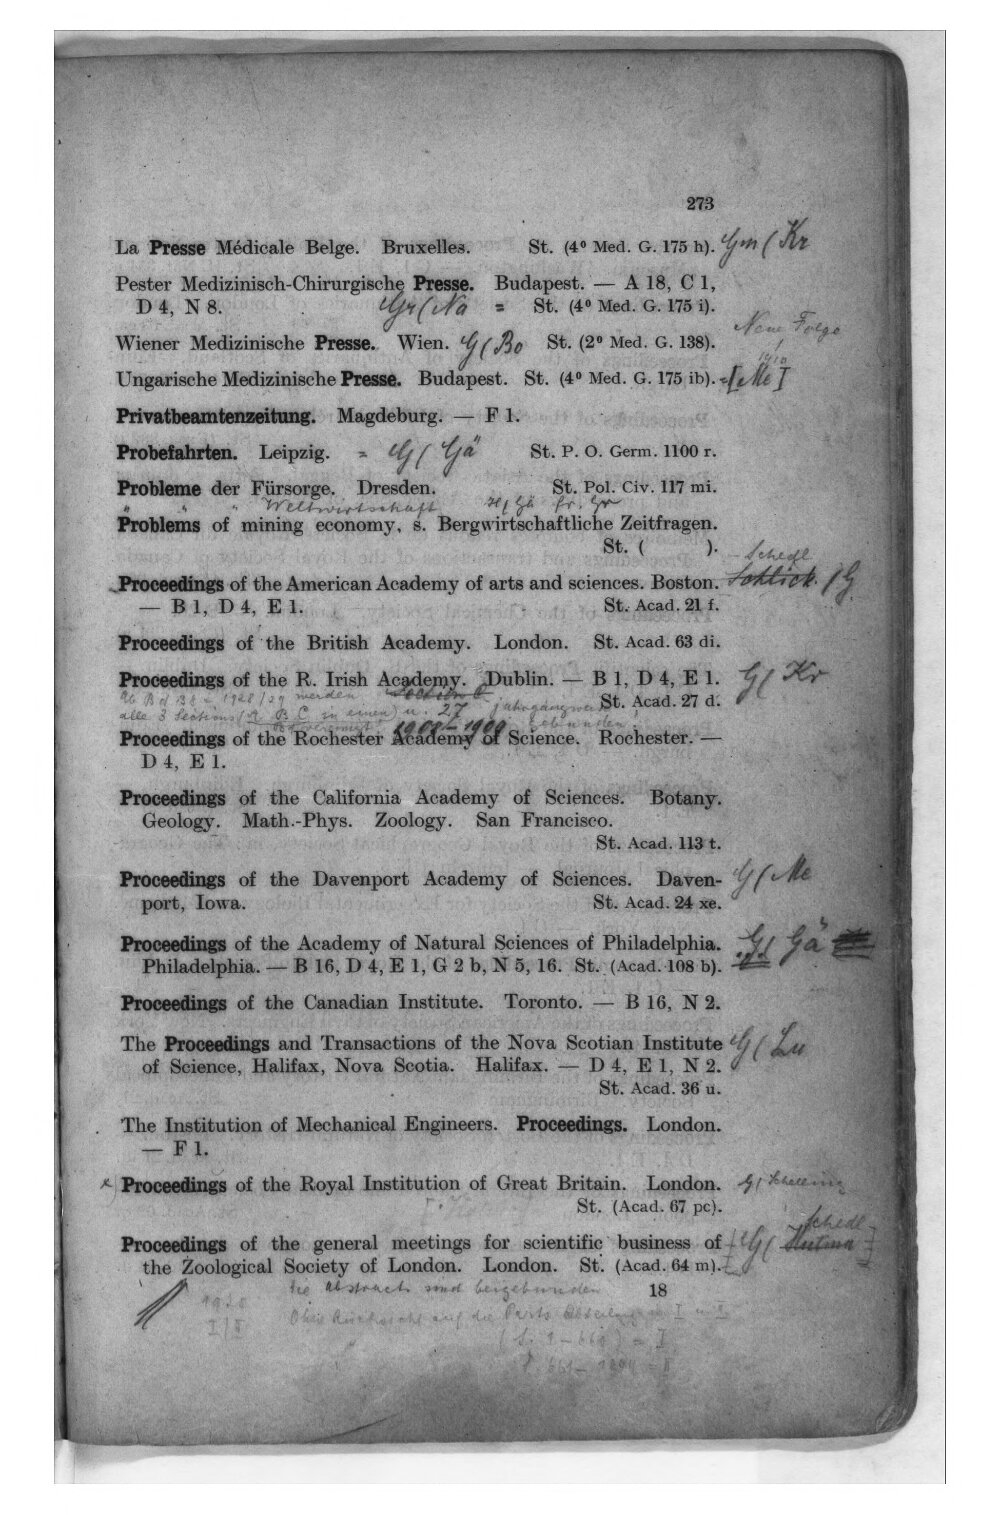 273
La Presse Médicale Belge. Bruxelles. St. (4⁰ Med. G. 175 h). Gm ( Kr
Pester Medizinisch-Chirurgische Presse. Budapest. — A 18, C 1,
D 4, N 8. Gr ( Na = St. (4⁰ Med. G. 175 i).
Neue Folge
Wiener Medizinische Presse. Wien. G ( Bo St. (2⁰ Med. G. 138).
1910
Ungarische Medizinische Presse. Budapest. St. (4⁰ Med. G. 175 ib). = [Me]
Privatbeamtenzeitung. Magdeburg. — F 1.
Probefahrten. Leipzig. = G ( Gä St. P. O. Germ. 1100 r.
Probleme der Fürsorge. Dresden. St. Pol. Civ. 117 mi.
" " " Weltwirtschaft
Problems of mining economy, s. Bergwirtschaftliche Zeitfragen.
St. ( ).
– Schedl
Proceedings of the American Academy of arts and sciences. Boston. Schlick. / G
— B 1, D 4, E 1. St. Acad. 21 f.
Proceedings of the British Academy. London. St. Acad. 63 di.
Proceedings of the R. Irish Academy. Dublin. — B 1, D 4, E 1. G ( Kr
Section C
Ab Bd 38 = 1928/29 werden St. Acad. 27 d.
alle 3 Sections (A B C in einen) u. 27 jahrgangsweise
gebunden;
1908–1909
Proceedings of the Rochester Academy of Science. Rochester. —
D 4, E 1.
Proceedings of the California Academy of Sciences. Botany.
Geology. Math.-Phys. Zoology. San Francisco.
St. Acad. 113 t.
Proceedings of the Davenport Academy of Sciences. Daven- G ( Me
port, Iowa. St. Acad. 24 xe.
Proceedings of the Academy of Natural Sciences of Philadelphia. G ( Gä
Philadelphia. — B 16, D 4, E 1, G 2 b, N 5, 16. St. (Acad. 108 b).
Proceedings of the Canadian Institute. Toronto. — B 16, N 2.
The Proceedings and Transactions of the Nova Scotian Institute G ( Lu
of Science, Halifax, Nova Scotia. Halifax. — D 4, E 1, N 2.
St. Acad. 36 u.
The Institution of Mechanical Engineers. Proceedings. London.
— F 1.
Proceedings of the Royal Institution of Great Britain. London. G ( Schelling
St. (Acad. 67 pc).
Schedl
Proceedings of the general meetings for scientific business of G (
the Zoological Society of London. London. St. (Acad. 64 m).
18
Die Abstracts sind beigebunden
1930
I/II
Ohne Rücksicht auf die Parts Abteilung in I u. II
(S. 1–660) = I